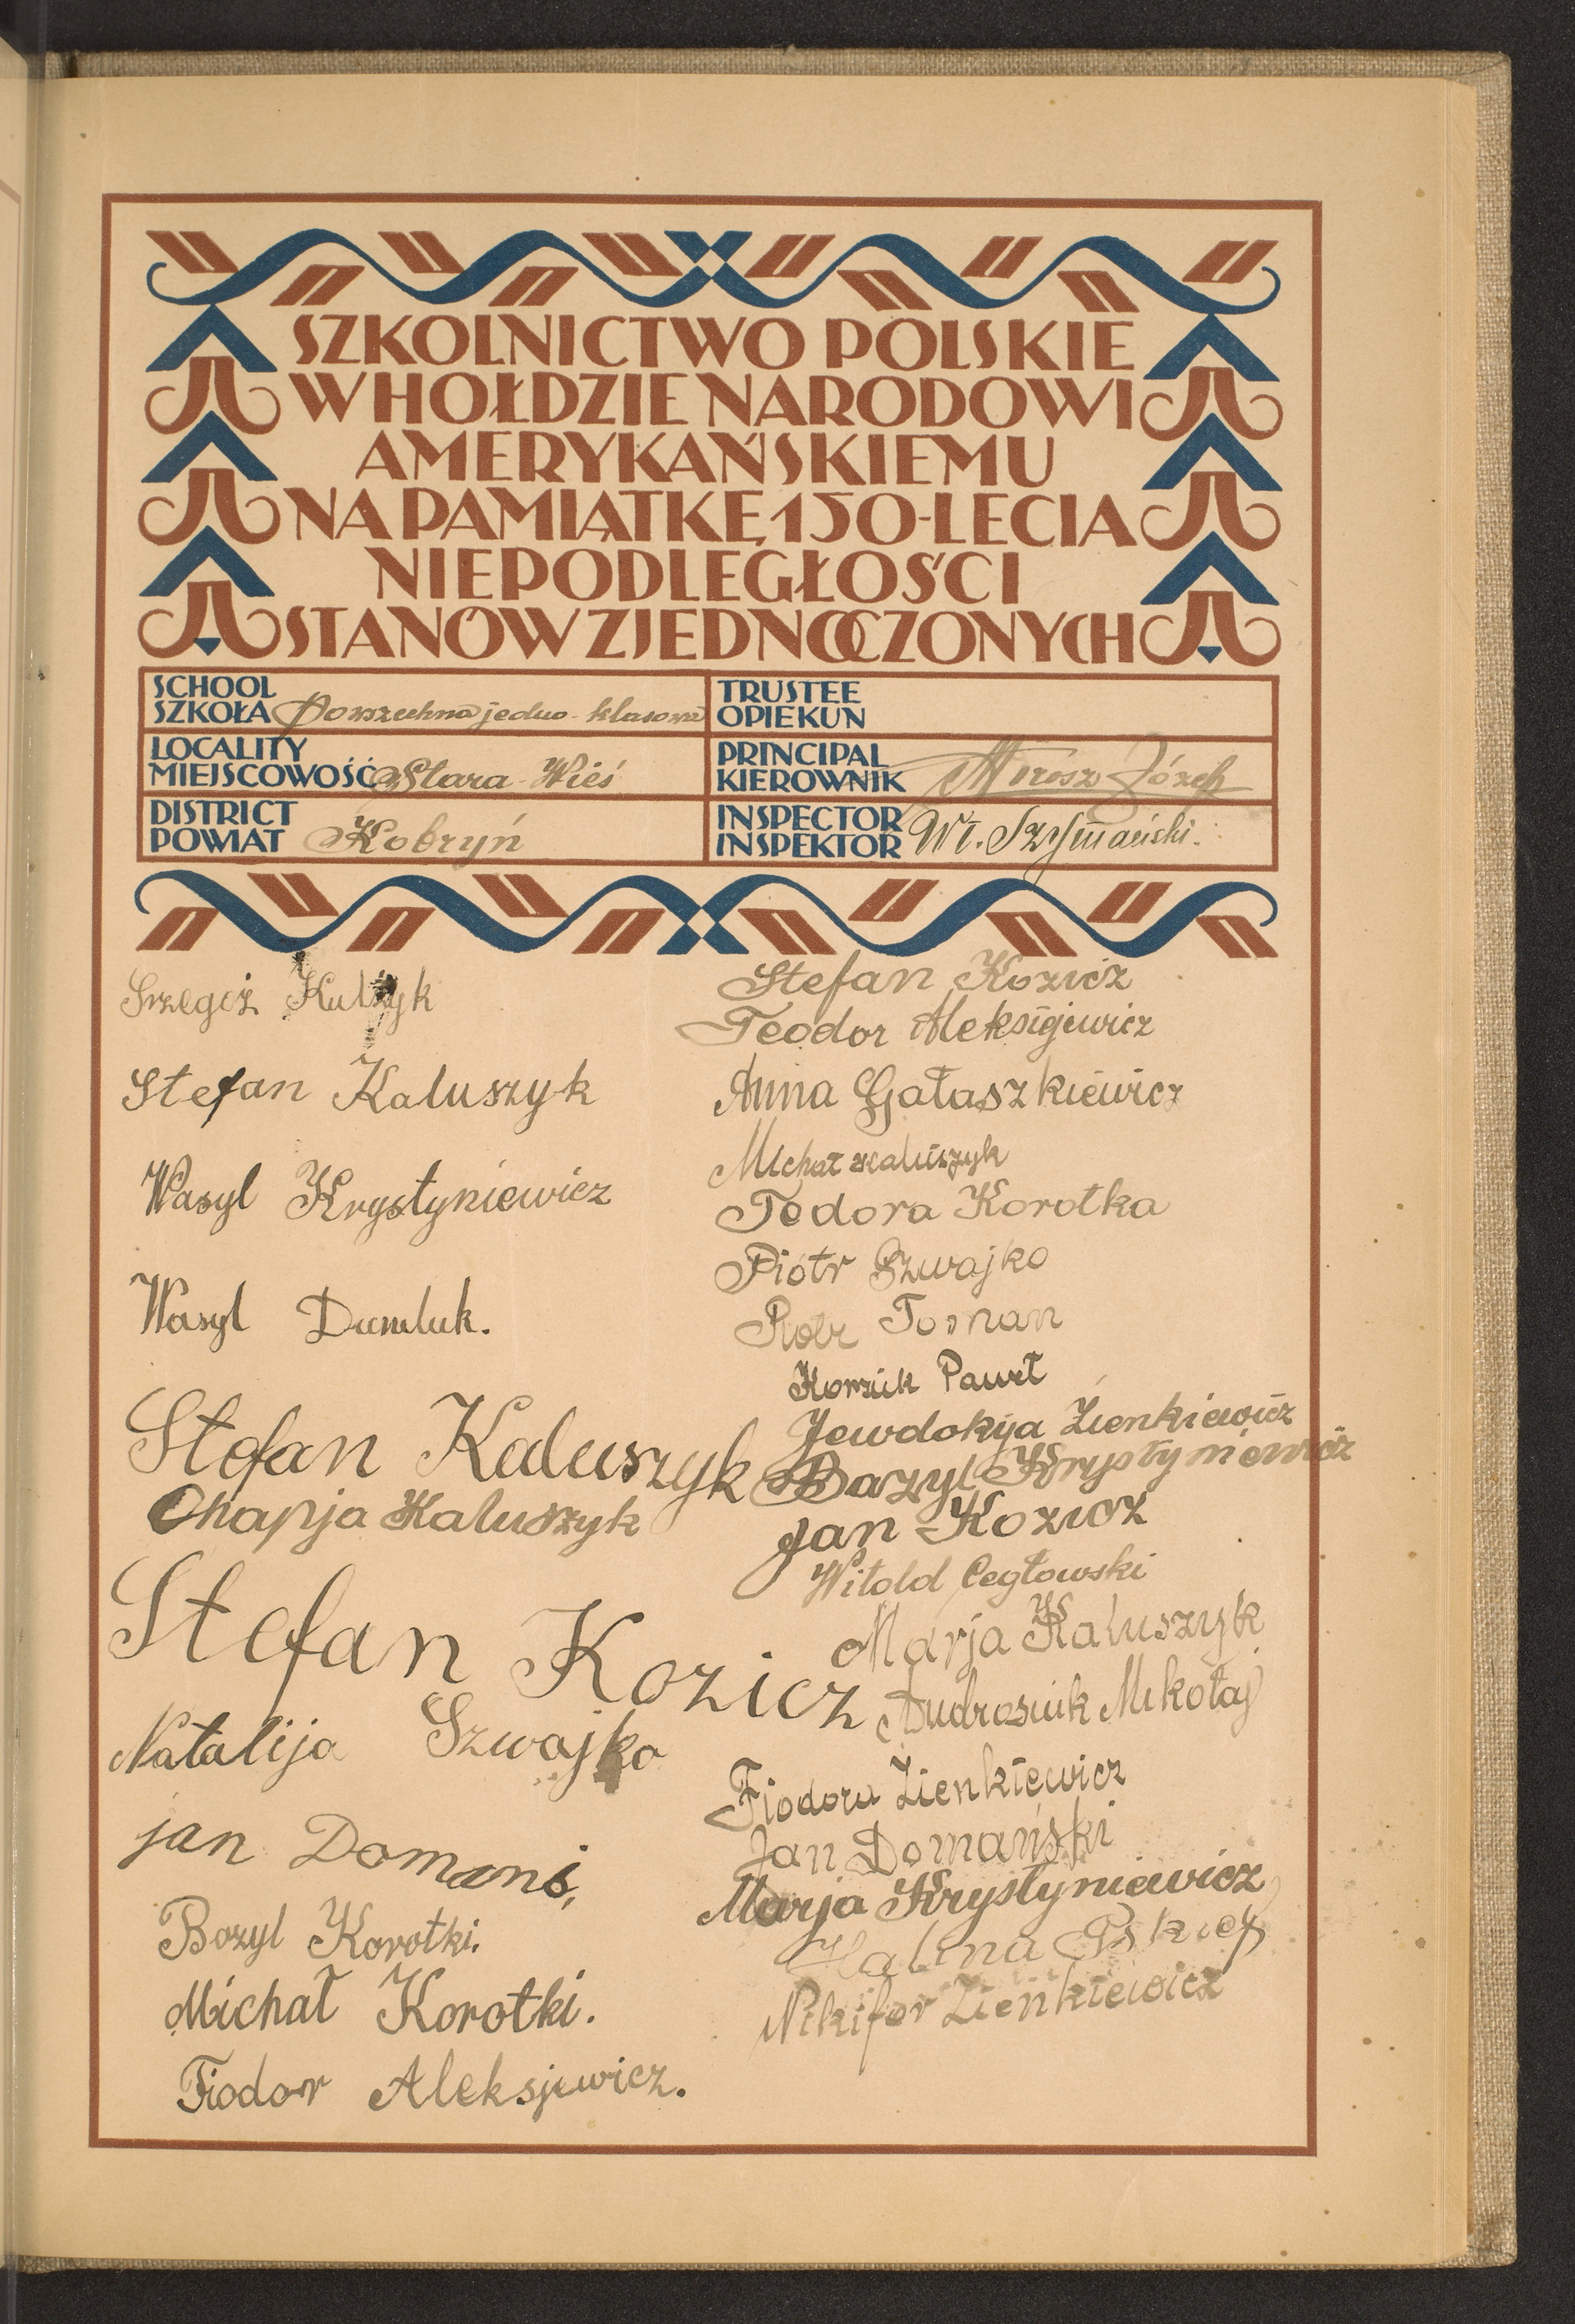 SZKOLNICTWO POLSKIE
W HOŁDZIE NARODOWI
AMERYKAŃSKIEMU
NA PAMIĄTKĘ 150-LECIA
NIEPODLEGŁOŚCI
STANÓW ZJEDNOCZONYCH
SCHOOL
SZKOŁA Powszechna jedno-klasowa
LOCALITY
MIEJSCOWOŚĆ Stara-Wieś
DISTRICT
POWIAT Kobryń
TRUSTEE
OPIEKUN
PRINCIPAL
KIEROWNIK Józef
INSPECTOR
INSPEKTOR Wł. Szymański.
Grzegoż
Stefan Kaluszyk
Wasyl Krystyniewicz
Wasyl
Stefan Kaluszyk
Chapja Kaluszyk
Stefan Kozicz
Natalija Szwajko
jan
Bazyl Korotki.
Michał Korotki.
Fiodor Aleksjewicz.
Stefan Kozicz
Teodor Aleksijewicz
Anna Gałaszkiewicz
Michał Kaluszyk
Teodora Korotka
Piótr Szwajko
Piotr Toman
Korzuk Paweł
Jewdokija Zienkiewicz
Bazyl Krystyniewicz
Jan Kozicz
Witold Cegłowski
Marja Kaluszyk
Androsiuk Mikołaj
Fiodora Zienkiewicz
Jan Domański
Marja Krystyniewicz
Halina
Nikifor Zienkiewicz